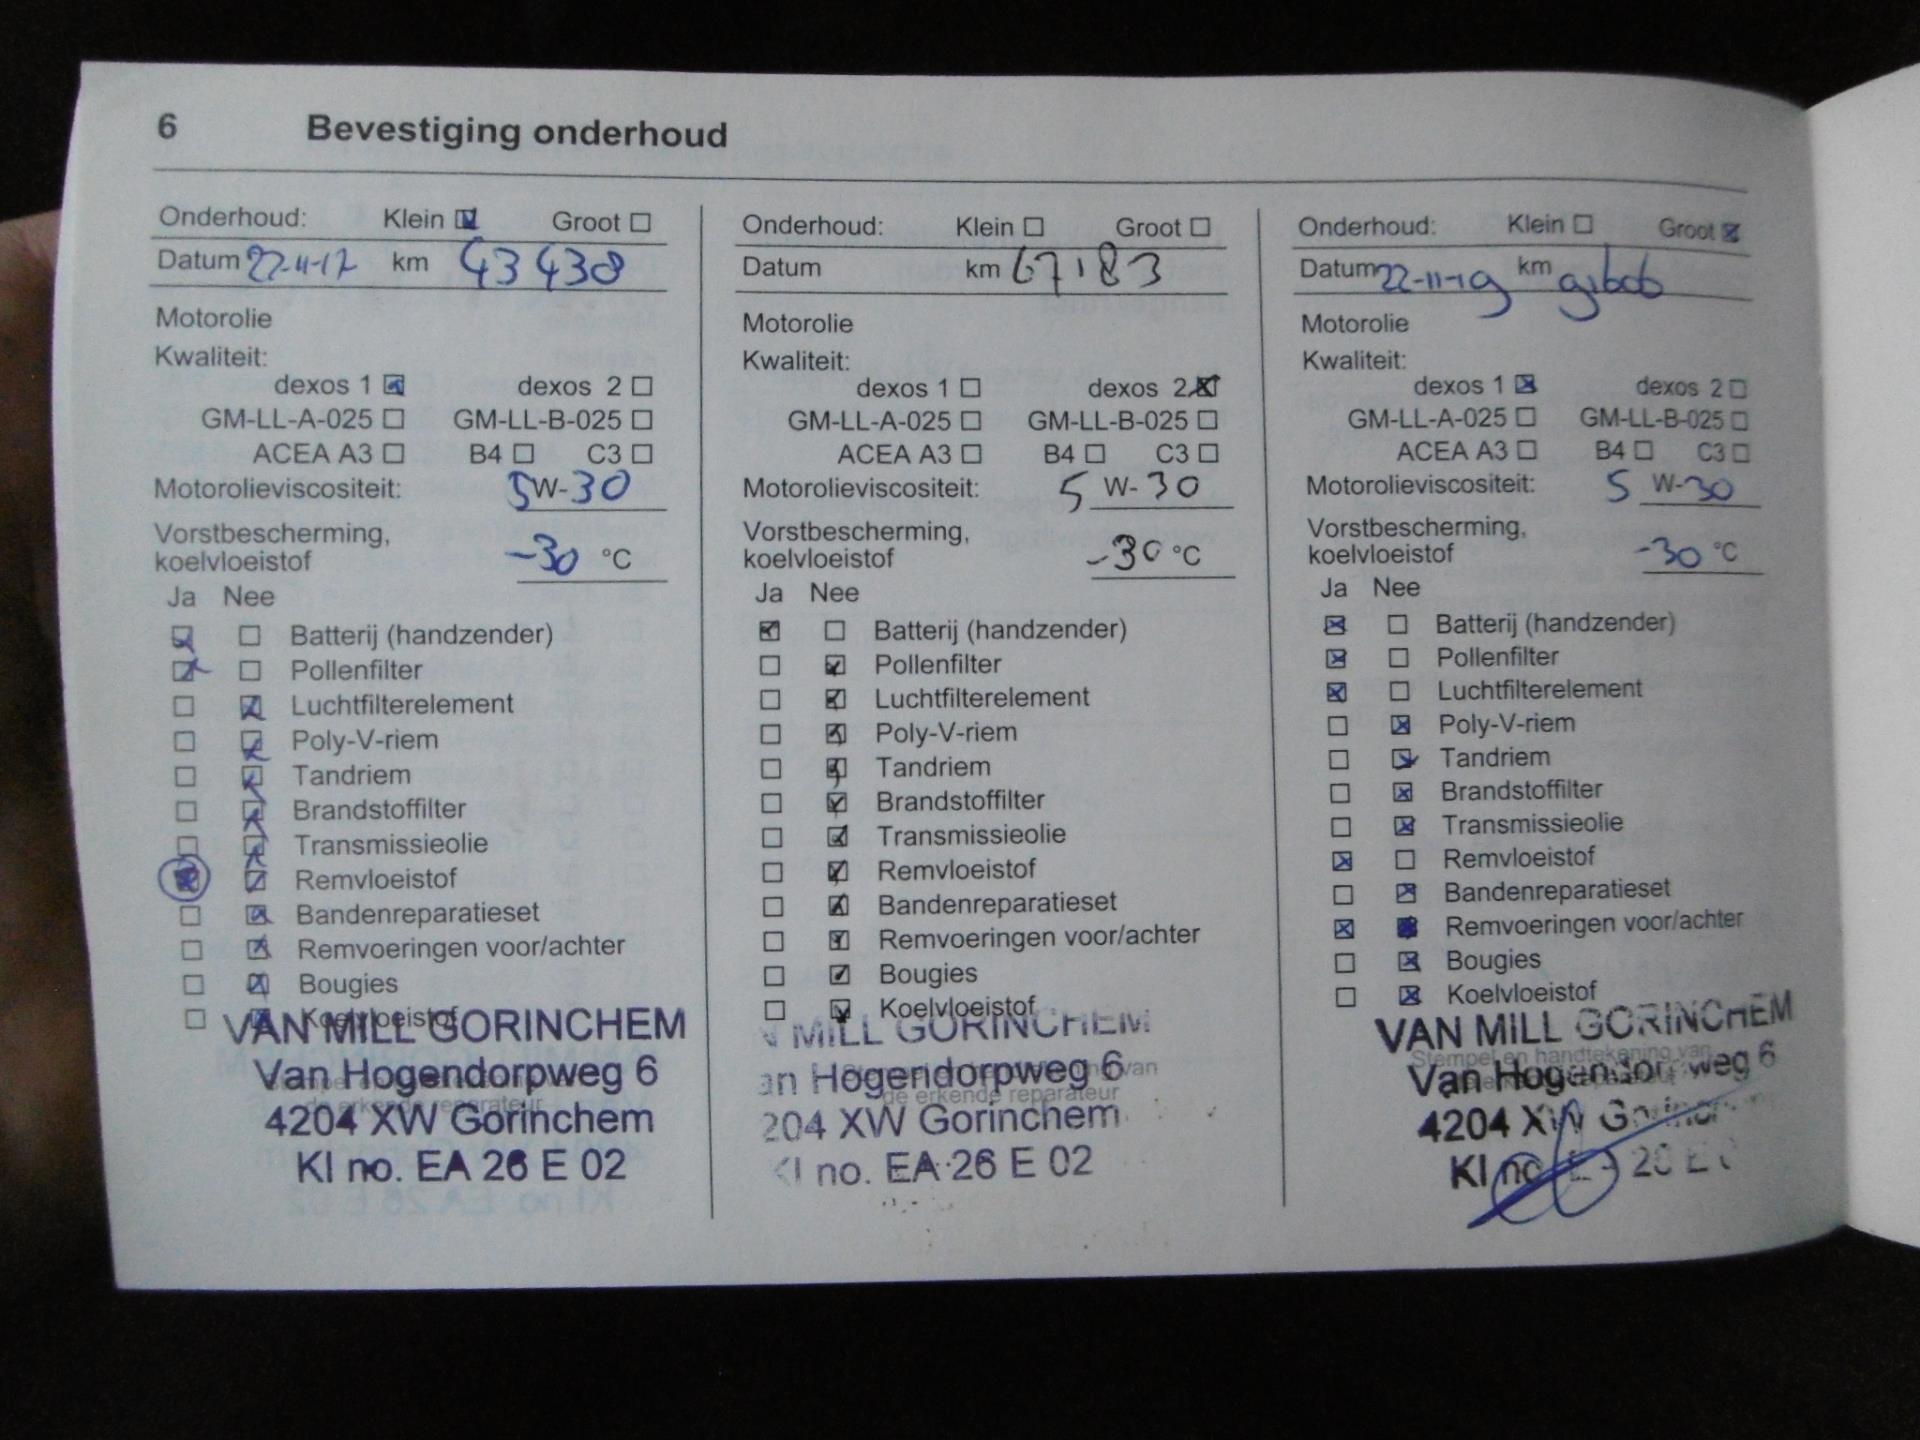 6 Bevestiging onderhoud
Onderhoud: Klein Groot
Datum km 43 438
Motorolie
Kwaliteit:
dexos 1 dexos 2
GM-LL-A-025 GM-LL-B-025
ACEA A3 B4 C3
Motorolieviscositeit: 5W-30
Vorstbescherming,
koelvloeistof -30 °C
Ja Nee
Batterij (handzender)
Pollenfilter
Luchtfilterelement
Poly-V-riem
Tandriem
Brandstoffilter
Transmissieolie
Remvloeistof
Bandenreparatieset
Remvoeringen voor/achter
Bougies
Koelvloeistof
VAN MILL GORINCHEM
Van Hogendorpweg 6
de erkende reparateur
4204 XW Gorinchem
KI no. EA 26 E 02
Onderhoud: Klein Groot
Datum km 67183
Motorolie
Kwaliteit:
dexos 1 dexos 2
GM-LL-A-025 GM-LL-B-025
ACEA A3 B4 C3
Motorolieviscositeit: 5 W-30
Vorstbescherming,
koelvloeistof -30 °C
Ja Nee
Batterij (handzender)
Pollenfilter
Luchtfilterelement
Poly-V-riem
Tandriem
Brandstoffilter
Transmissieolie
Remvloeistof
Bandenreparatieset
Remvoeringen voor/achter
Bougies
Koelvloeistof
MILL GORINCHEM
Hogendorpweg 6
de erkende reparateur
XW Gorinchem
KI no. EA 26 E 02
Onderhoud: Klein Groot
Datum 22-11-19 km
Motorolie
Kwaliteit:
dexos 1 dexos 2
GM-LL-A-025 GM-LL-B-025
ACEA A3 B4 C3
Motorolieviscositeit: 5 W-30
Vorstbescherming,
koelvloeistof -30 °C
Ja Nee
Batterij (handzender)
Pollenfilter
Luchtfilterelement
Poly-V-riem
Tandriem
Brandstoffilter
Transmissieolie
Remvloeistof
Bandenreparatieset
Remvoeringen voor/achter
Bougies
Koelvloeistof
VAN MILL GORINCHEM
Stempel en handtekening van
Van Hogendorpweg 6
4204 XW
KI no.